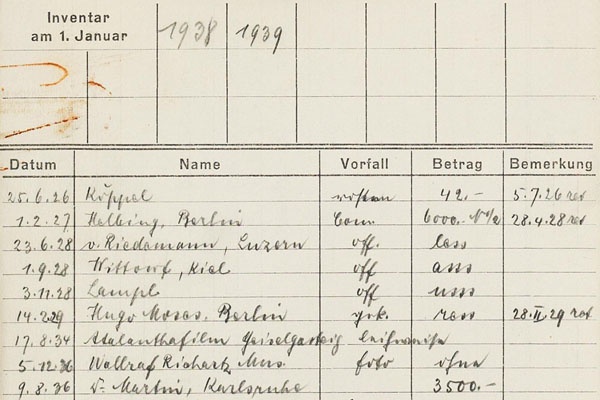 Inventar
am 1. Januar 1938 1939
Datum Name Vorfall Betrag Bemerkung
25.6.26 Köppel 42.- 5.7.26 ret
1.2.27 Helbing, Berlin Com. 6000.- 28.4.28 ret
23.6.28 v. Riedemann, Luzern off. less
1.9.28 Wittorf, Kiel off ass
3.11.28 Lampl off uss
14.2.29 Hugo Moses. Berlin ress 28.II.29 ret
17.8.34 Atalanthafilm Geiselgasteig leihweise
5.12.36 Wallraf Richartz Mus. foto ohne
9.8.36 Martin, Karlsruhe 3500.-